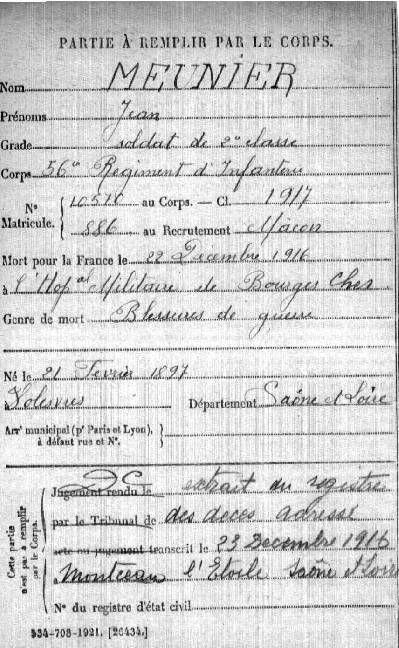 PARTIE À REMPLIR PAR LE CORPS.
Nom MEUNIER
Prénoms Jean
Grade soldat de 2e classe
Corps 56e Regiment d'Infanterie
N° Matricule. { 10510 au Corps. — Cl. 1917
886 au Recrutement Mâcon
Mort pour la France le 22 Decembre 1916
à l'Hopal Militaire de Bourges Cher
Genre de mort Blessures de guerre
Né le 21 Fevrier 1897
Département Saône et Loire
Arrt municipal (pr Paris et Lyon), à défaut rue et N°.
Cette partie n'est pas à remplir par le Corps.
Jugement rendu le extrait du registre
par le Tribunal de des deces adressé
acte ou jugement transcrit le 23 Decembre 1916
Montceau l'Etoile Saône et Loire
N° du registre d'état civil
534-708-1921. [26434.]